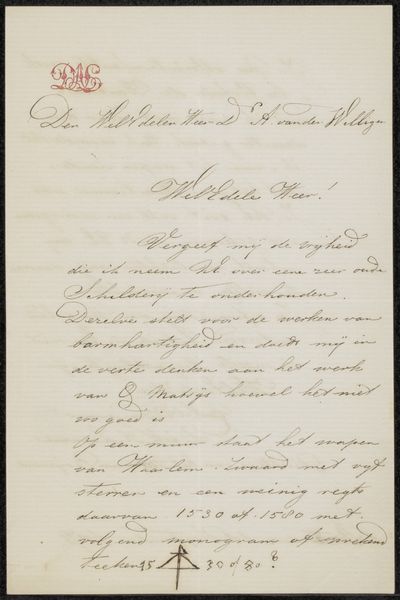 Den WelEdelen Heer Dr A. van der Willigen
WelEdele Heer!
Vergeef mij de vrijheid
die ik neem U over eene zeer oude
Schilderij te onderhouden.
Dezelve stelt voor de werken van
barmhartigheid en doedt mij in
de verte denken aan het werk
van Q Matsijs hoewel het niet
zoo goed is
Op een muur staat het wapen
van Haarlem. Zwaard met vyf
sterren en een weinig regts
daarvan 1530 of 1580 met
volgend monogram of
teeken 15 30 of 80?